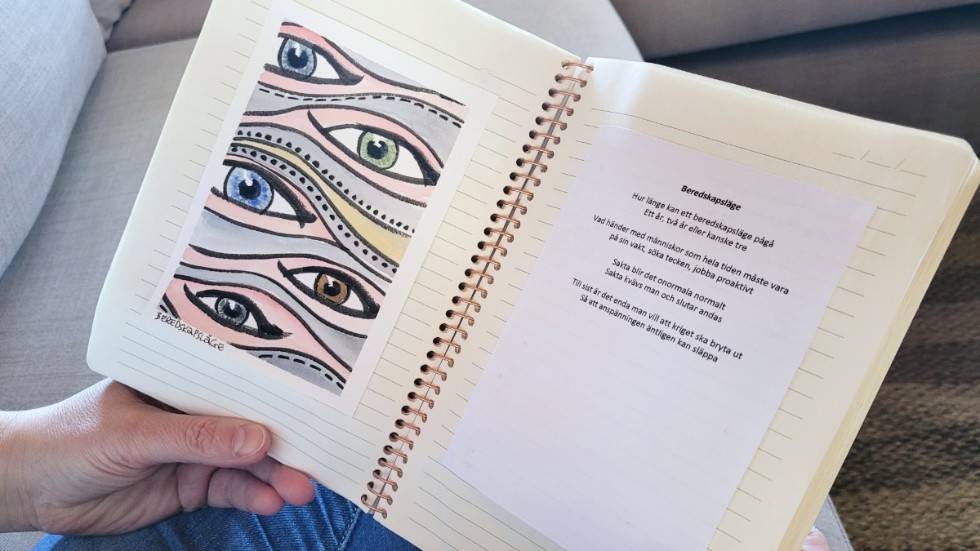 BEREDSKAPSLÄGE
Beredskapsläge
Hur länge kan ett beredskapsläge pågå
Ett år, två år eller kanske tre
Vad händer med människor som hela tiden måste vara
på sin vakt, söka tecken, jobba proaktivt
Sakta blir det onormala normalt
Sakta kvävs man och slutar andas
Till sist är det enda man vill att kriget ska bryta ut
Så att anspänningen äntligen kan släppa